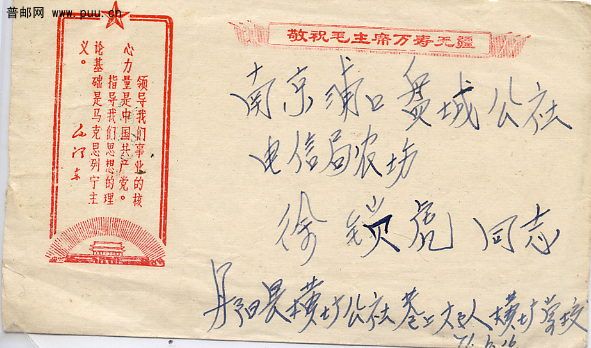 普邮网 www.puu.cn
敬祝毛主席万寿无疆
领导我们事业的核
心力量是中国共产党。
指导我们思想的理
论基础是马克思列宁主
义。
毛泽东
南京浦口盘城公社
电信局农场
徐锁虎 同志
丹阳县横塘公社 横塘学校